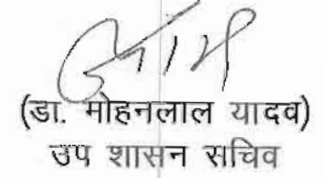 (डा. मोहनलाल यादव)
उप शासन सचिव